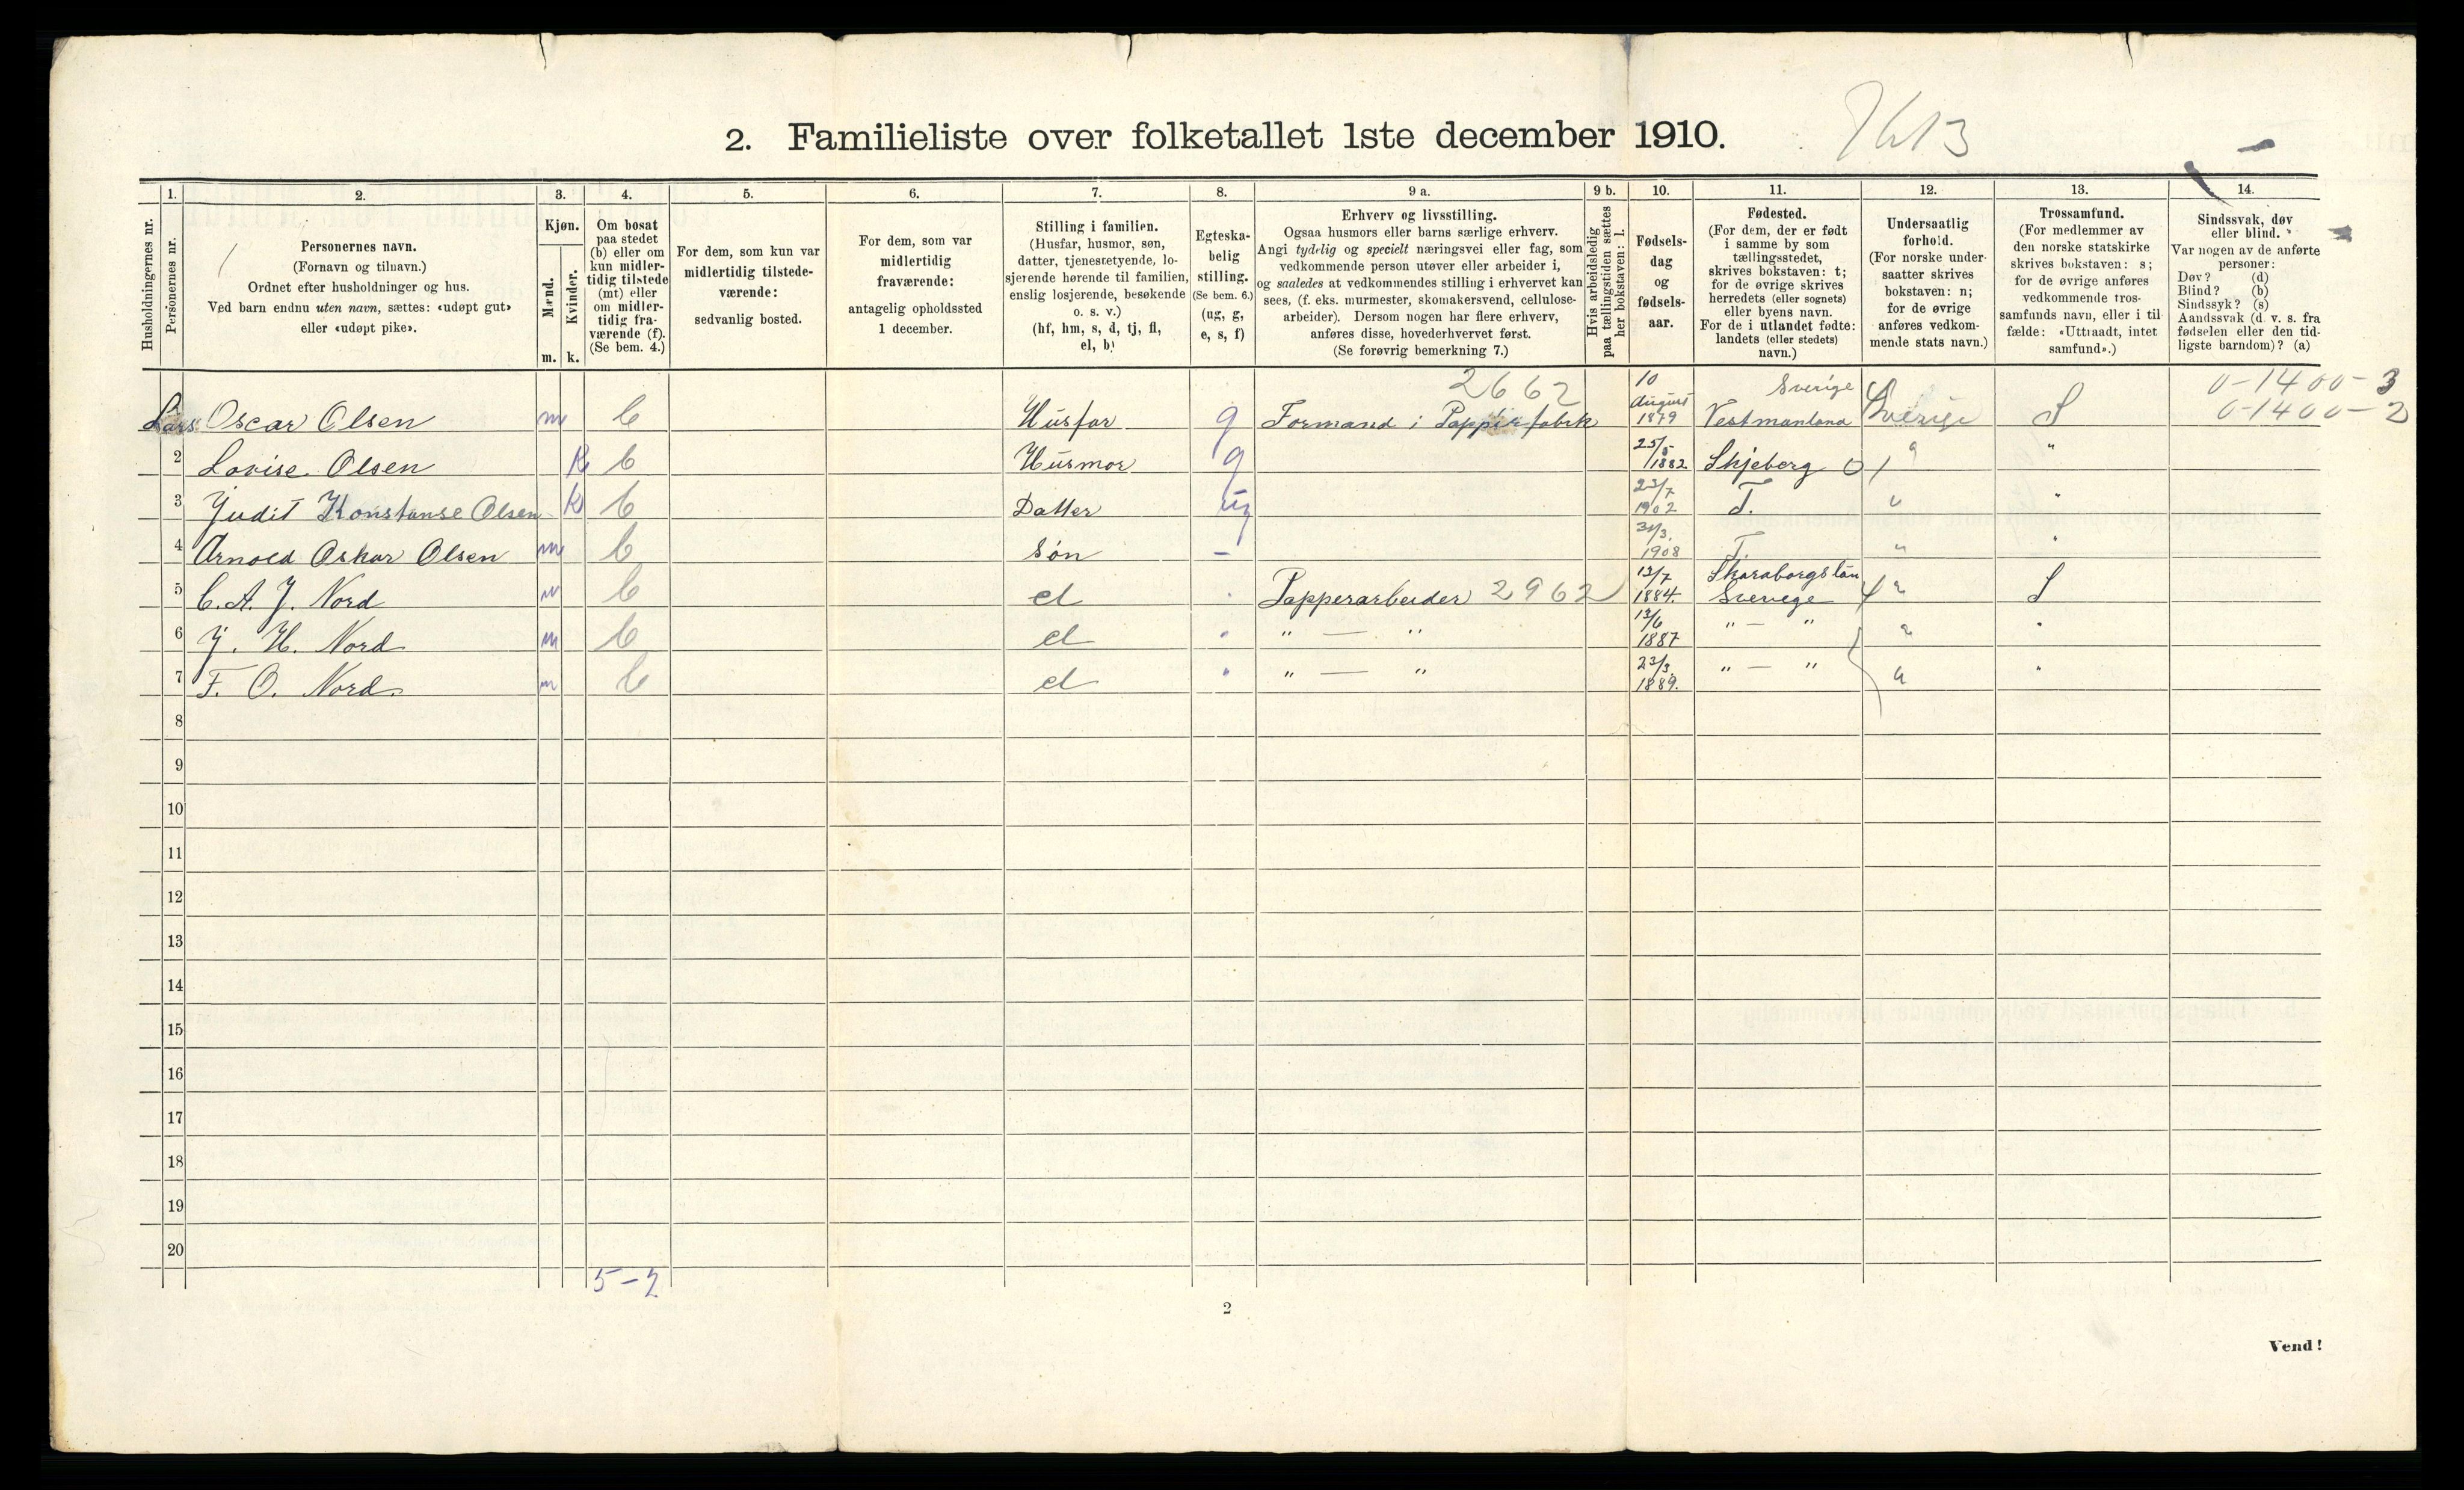 2. Familieliste over folketallet 1ste december 1910.
1. 2. 3. 4. 5. 6. 7. 8. 9 a. 9 b. 10. 11. 12. 13. 14.
Husholdningernes nr.
Personernes nr.
Personernes navn.
(Fornavn og tilnavn.)
Ordnet efter husholdninger og hus.
Ved barn endnu uten navn, sættes: «udøpt gut»
eller «udøpt pike».
Kjøn.
Mænd.
Kvinder.
m. k.
Om bosat
paa stedet
(b) eller om
kun midler-
tidig tilstede
(mt) eller
om midler-
tidig fra-
værende (f).
(Se bem. 4.)
For dem, som kun var
midlertidig tilstede-
værende:
sedvanlig bosted.
For dem, som var
midlertidig
fraværende:
antagelig opholdssted
1 december.
Stilling i familien.
(Husfar, husmor, søn,
datter, tjenestetyende, lo-
sjerende hørende til familien,
enslig losjerende, besøkende
o. s. v.)
(hf, hm, s, d, tj, fl,
el, b)
Egteska-
belig
stilling.
(Se bem. 6.)
(ug, g,
e, s, f)
Erhverv og livsstilling.
Ogsaa husmors eller barns særlige erhverv.
Angi tydelig og specielt næringsvei eller fag, som
vedkommende person utøver eller arbeider i,
og saaledes at vedkommendes stilling i erhvervet kan
sees, (f. eks. murmester, skomakersvend, cellulose-
arbeider). Dersom nogen har flere erhverv,
anføres disse, hovederhvervet først.
(Se forøvrig bemerkning 7.)
Hvis arbeidsledig
paa tællingstiden sættes
her bokstaven: l.
Fødsels-
dag
og
fødsels-
aar.
Fødested.
(For dem, der er født
i samme by som
tællingsstedet,
skrives bokstaven: t;
for de øvrige skrives
herredets (eller sognets)
eller byens navn.
For de i utlandet fødte:
landets (eller stedets)
navn.)
Undersaatlig
forhold.
(For norske under-
saatter skrives
bokstaven: n;
for de øvrige
anføres vedkom-
mende stats navn.)
Trossamfund.
(For medlemmer av
den norske statskirke
skrives bokstaven: s;
for de øvrige anføres
vedkommende tros-
samfunds navn, eller i til-
fælde: «Uttraadt, intet
samfund».)
Sindssvak, døv
eller blind.
Var nogen av de anførte
personer:
Døv? (d)
Blind? (b)
Sindssyk? (s)
Aandssvak (d. v. s. fra
fødselen eller den tid-
ligste barndom)? (a)
2662 10 Sverige 0-1400-3
Lars Oscar Olsen m b Husfar g Formand i Pappirfabrk August 1879 Vestmanland Sverige S 0-1400-2
2 Lovise Olsen K b Husmor g 25/5 1882 Skjeberg 01 " "
3 Judit Konstanse Olsen K b Datter ug 23/7 1902 T. " "
4 Arnold Oskar Olsen m b Søn - 31/3. 1908 T. " "
5 C. A. J. Nord m b el " Papperarbeider 2962 12/7 1884. Skaraborgslän Sverege " S
6 J. H. Nord m b el " " — " 13/6 1887 " — " " "
7 F. O. Nord. m b el " " — " 23/3. 1889. " — " " "
8
9
10
11
12
13
14
15
16
17
18
19
20
5-2
2
Vend!